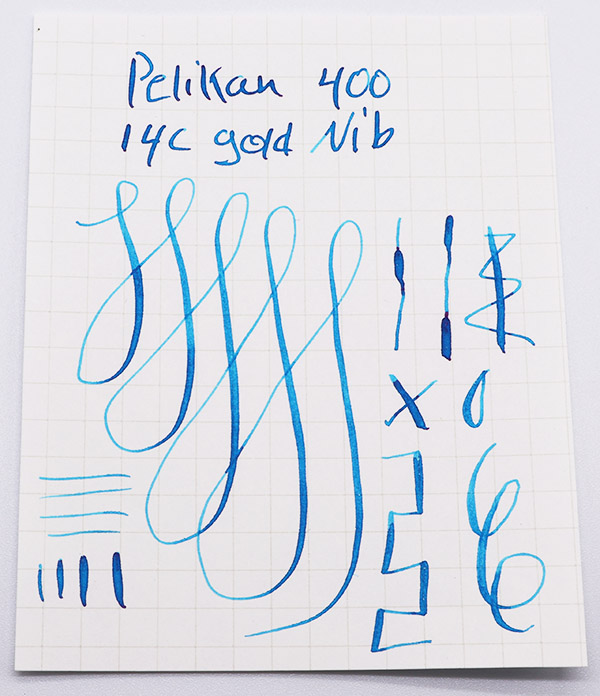 Pelikan 400
14C gold Nib
X O